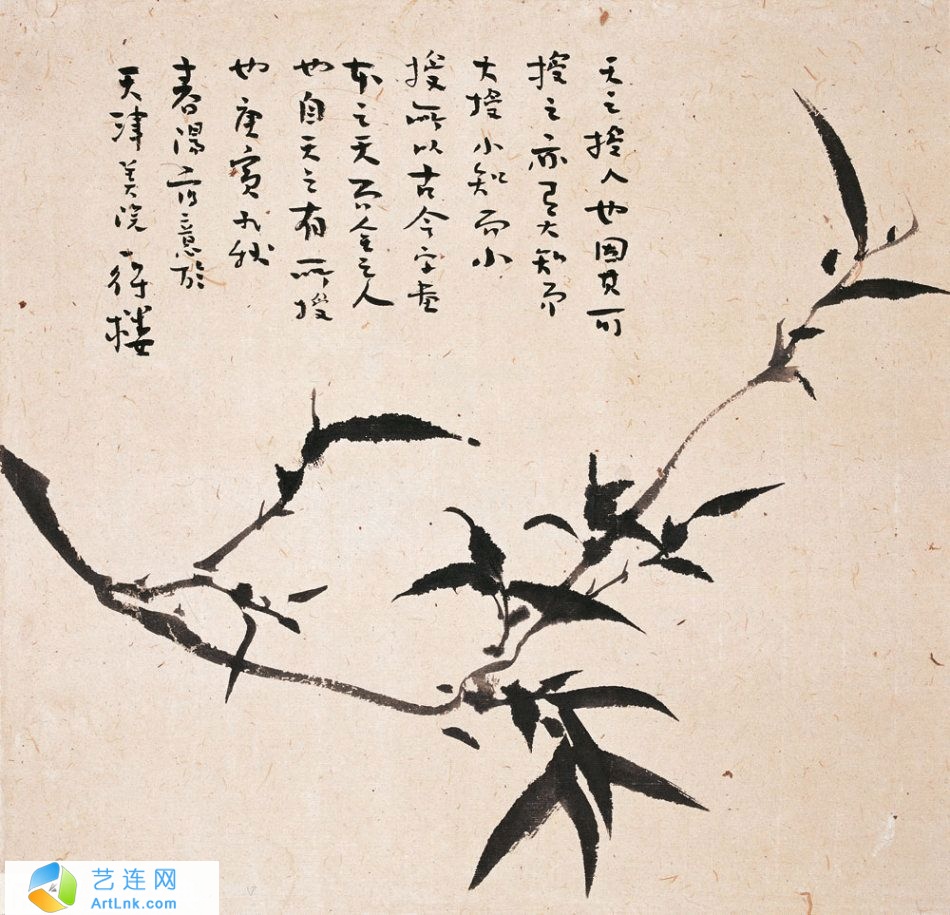 天之授人也因其可
授之亦有大知而
大授小知而小
授所以古今字画
本之天而全之人
也自天之有所授
也庚寅九秋
春陽写意於
天津美院一得楼
艺连网
ArtLnk.com